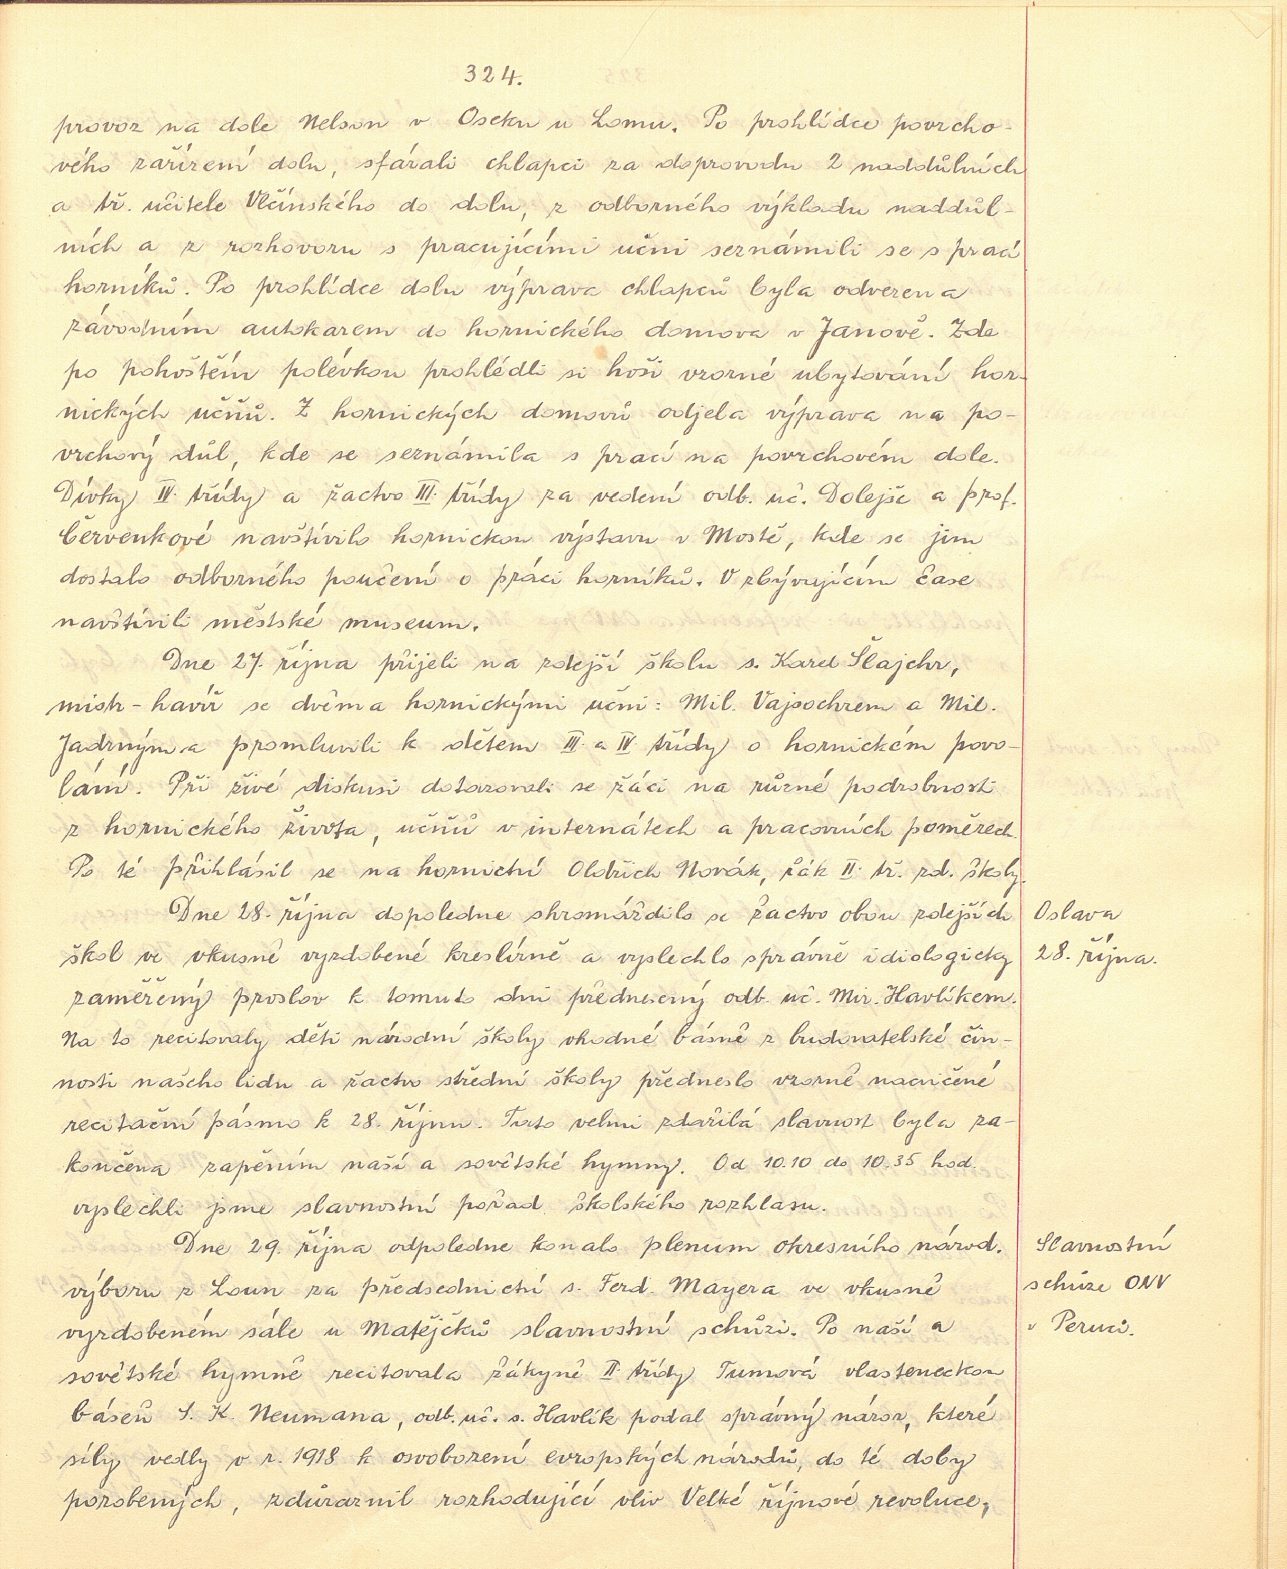 324.
provoz na dole Nelson v Oseku u Lomu. Po prohlídce povrcho-
vého zařízení dolu, sfárali chlapci za doprovodu 2 naddůlních
a tř. učitele Vlčinského do dolu, z odborného výkladu naddůl-
ních a z rozhovoru s pracujícími učni seznámili se s prací
horníků. Po prohlídce dolu výprava chlapců byla odvezena
závodním autokarem do hornického domova v Janově. Zde
po pohoštění polévkou prohlédli si hoši vzorné ubytování hor-
nických učňů. Z hornických domovů odjela výprava na po-
vrchový důl, kde se seznámila s prací na povrchovém dole.
Dívky IV. třídy a žactvo III. třídy za vedení odb. uč. Dolejše a prof.
Červenkové navštívilo hornickou výstavu v Mostě, kde se jim
dostalo odborného poučení o práci horníků. V zbývajícím čase
navštívili městské museum.
Dne 27. října přijeli na zdejší školu s. Karel Šlajchr,
mistr-havíř se dvěma hornickými učni: Mil. Vajsochrem a Mil.
Jadrným a promluvili k dětem III. a IV. třídy o hornickém povo-
lání. Při živé diskusi dotazovali se žáci na různé podrobnosti
z hornického života, učňů v internátech a pracovních poměrech.
Po té přihlásil se na hornictví Oldřich Novák, žák II. tř. zd. školy.
Dne 28. října dopoledne shromáždilo se žactvo obou zdejších
Oslava
škol ve vkusně vyzdobené kreslírně a vyslechlo správně idiologicky
28. října.
zaměřený proslov k tomuto dni přednesený odb. uč. Mir. Havlíkem.
Na to recitovaly děti národní školy vhodné básně z budovatelské čin-
nosti našeho lidu a žactvo střední školy předneslo vzorně nacvičené
recitační pásmo k 28. říjnu. Tato velmi zdařilá slavnost byla za-
končena zapěním naší a sovětské hymny. Od 10.10 do 10.35 hod.
vyslechli jsme slavnostní pořad školského rozhlasu.
Dne 29. října odpoledne konalo plenum okresního národ.
Slavnostní
výboru z Loun za předsednictví s. Ferd. Mayera ve vkusně
schůze ONV
vyzdobeném sále u Matějčků slavnostní schůzi. Po naší a
v Peruci.
sovětské hymně recitovala žákyně II. třídy Tumová vlasteneckou
báseň S. K. Neumana, odb. uč. s. Havlík podal správný názor, které
síly vedly v r. 1918 k osvobození evropských národů, do té doby
porobených, zdůraznil rozhodující vliv Velké říjnové revoluce,